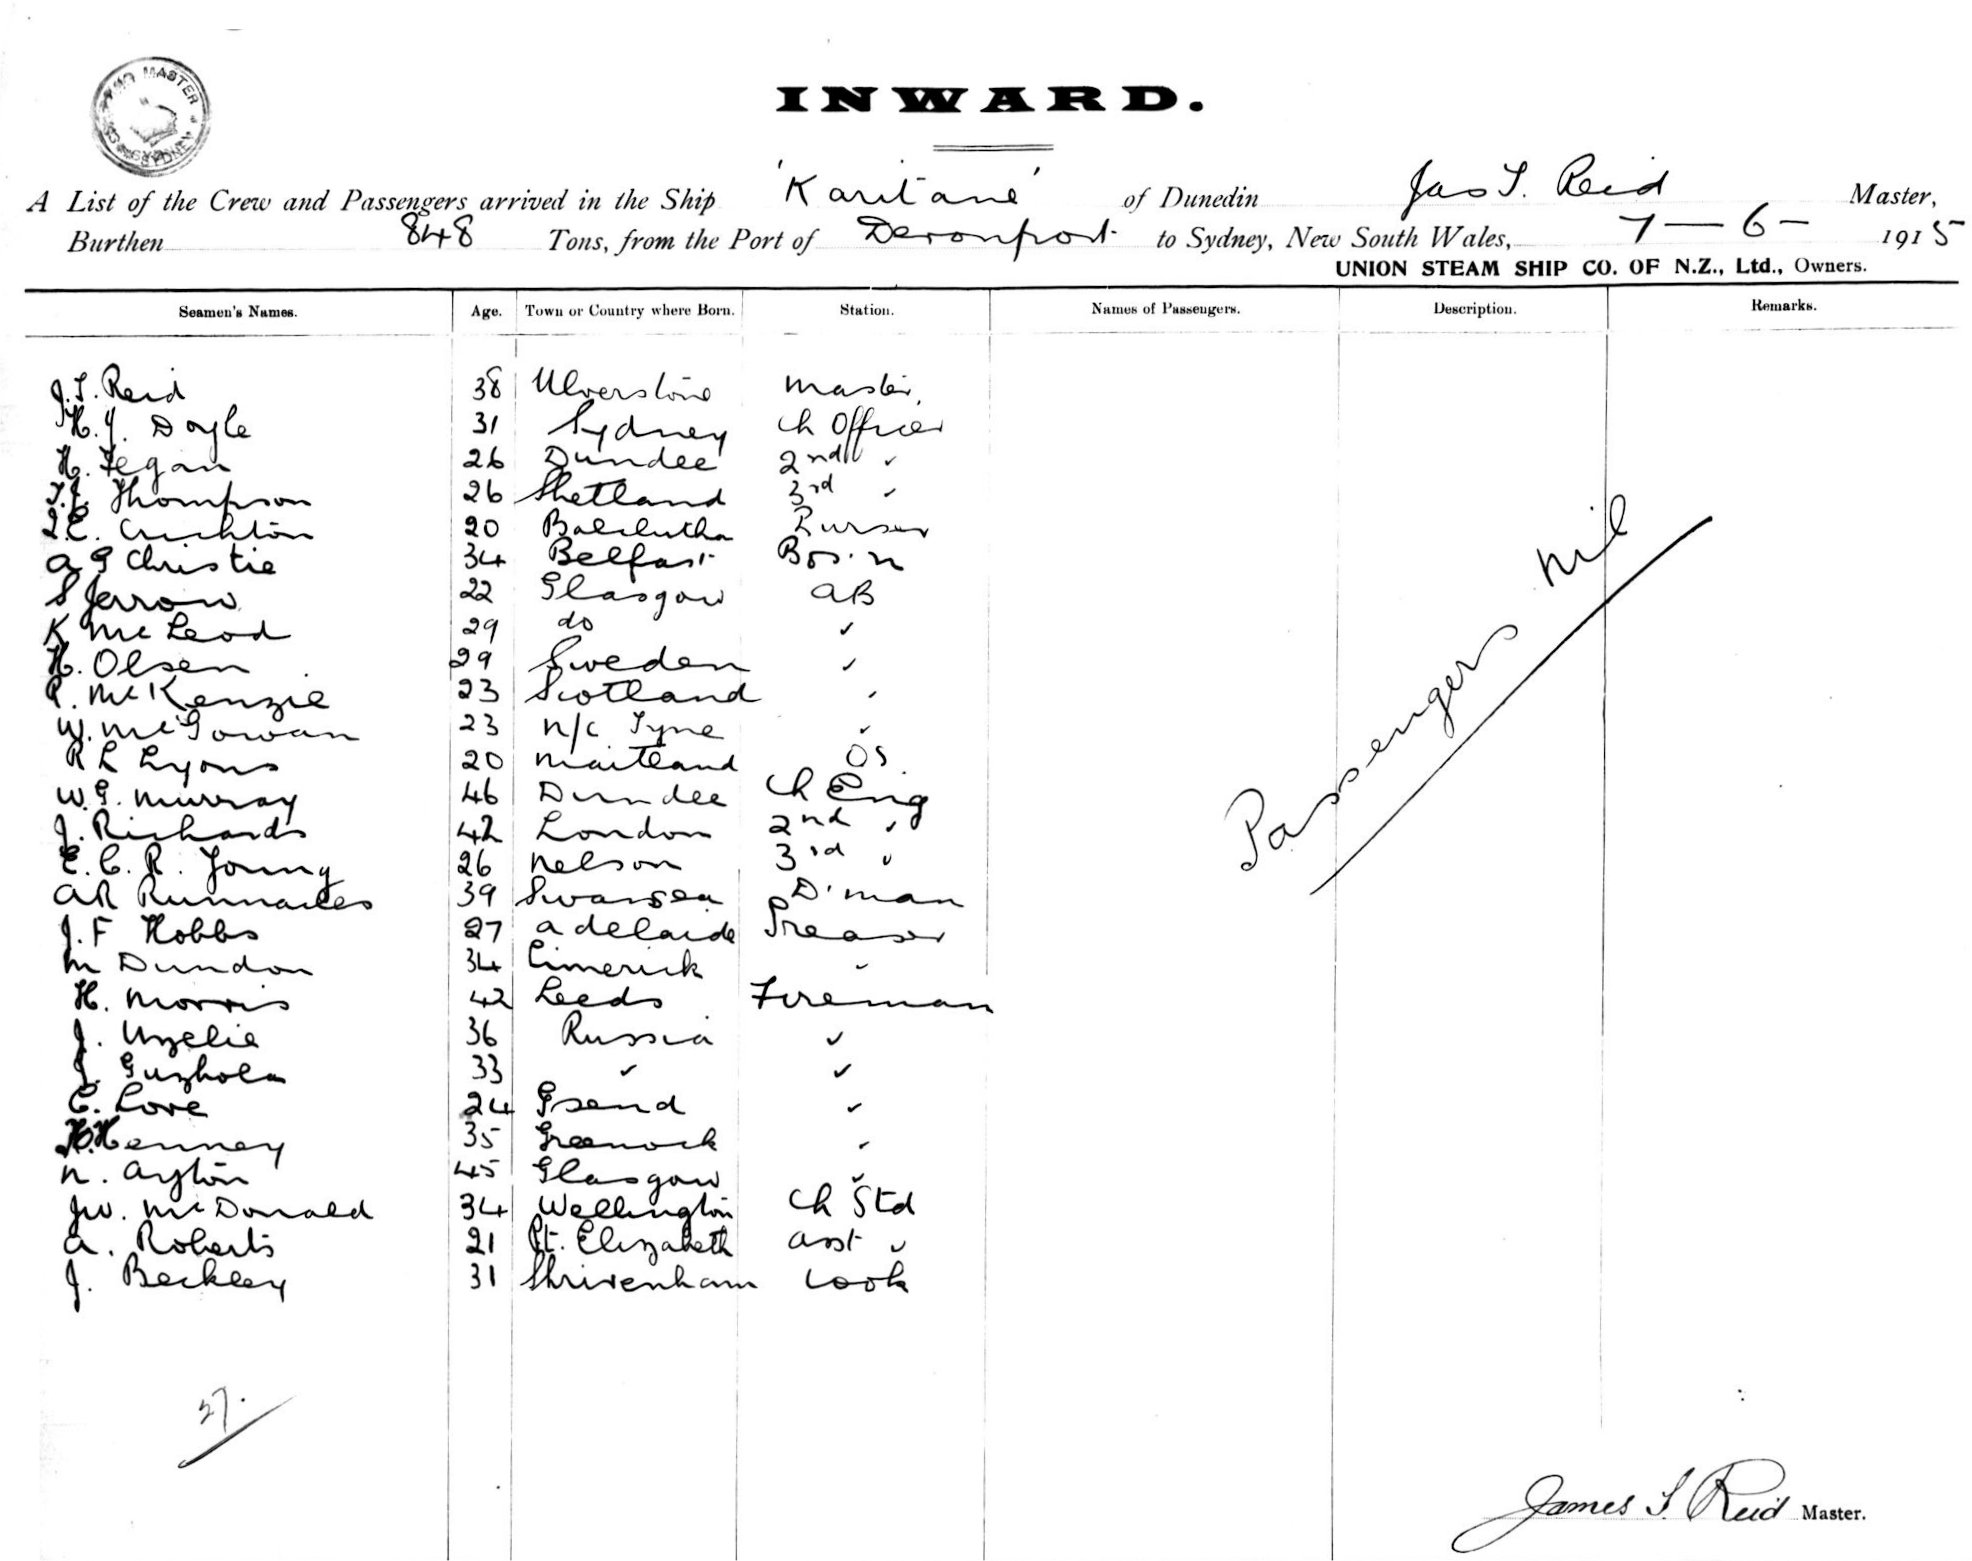 INWARD.
A List of the Crew and Passengers arrived in the Ship 'Karitane' of Dunedin Jas T. Reid Master,
Burthen 848 Tons, from the Port of Devonport to Sydney, New South Wales, 7 — 6 — 1915
UNION STEAM SHIP CO. OF N.Z., Ltd., Owners.
Seamen's Names. Age. Town or Country where Born. Station. Names of Passengers. Description. Remarks.
J.T. Reid 38 Ulverstone Master,
H.J. Doyle 31 Sydney Ch Officer
H. Fegan 26 Dundee 2nd "
T.J. Thompson 26 Shetland 3rd "
Crichton 20 Balclutha Purser
A G Christie 34 Belfast Bos.n
S Jerrow 22 Glasgow AB
K McLeod 29 do "
H. Olsen 29 Sweden "
P. McKenzie 23 Scotland "
W. McGowan 23 N/C Tyne "
R L Lyons 20 Maitland OS
W.G. Murray 46 Dundee Ch Eng
J. Richards 42 London 2nd "
E.C.R. Young 26 Nelson 3rd "
AR 39 Swansea D'man
J.F Hobbs 27 Adelaide Greaser
M Dundon 34 Limerick "
H. Morris 42 Leeds Fireman
J. Uzelie 36 Russia "
J. 33 " "
C. Love 24 Gsend "
H. Henney 35 Greenock "
N. Ayton 45 Glasgow "
JW. McDonald 34 Wellington Ch Std
A. Roberts 21 Pt. Elizabeth Asst "
J. Beckley 31 Shrivenham Cook
Passengers Nil
27.
James T. Reid Master.